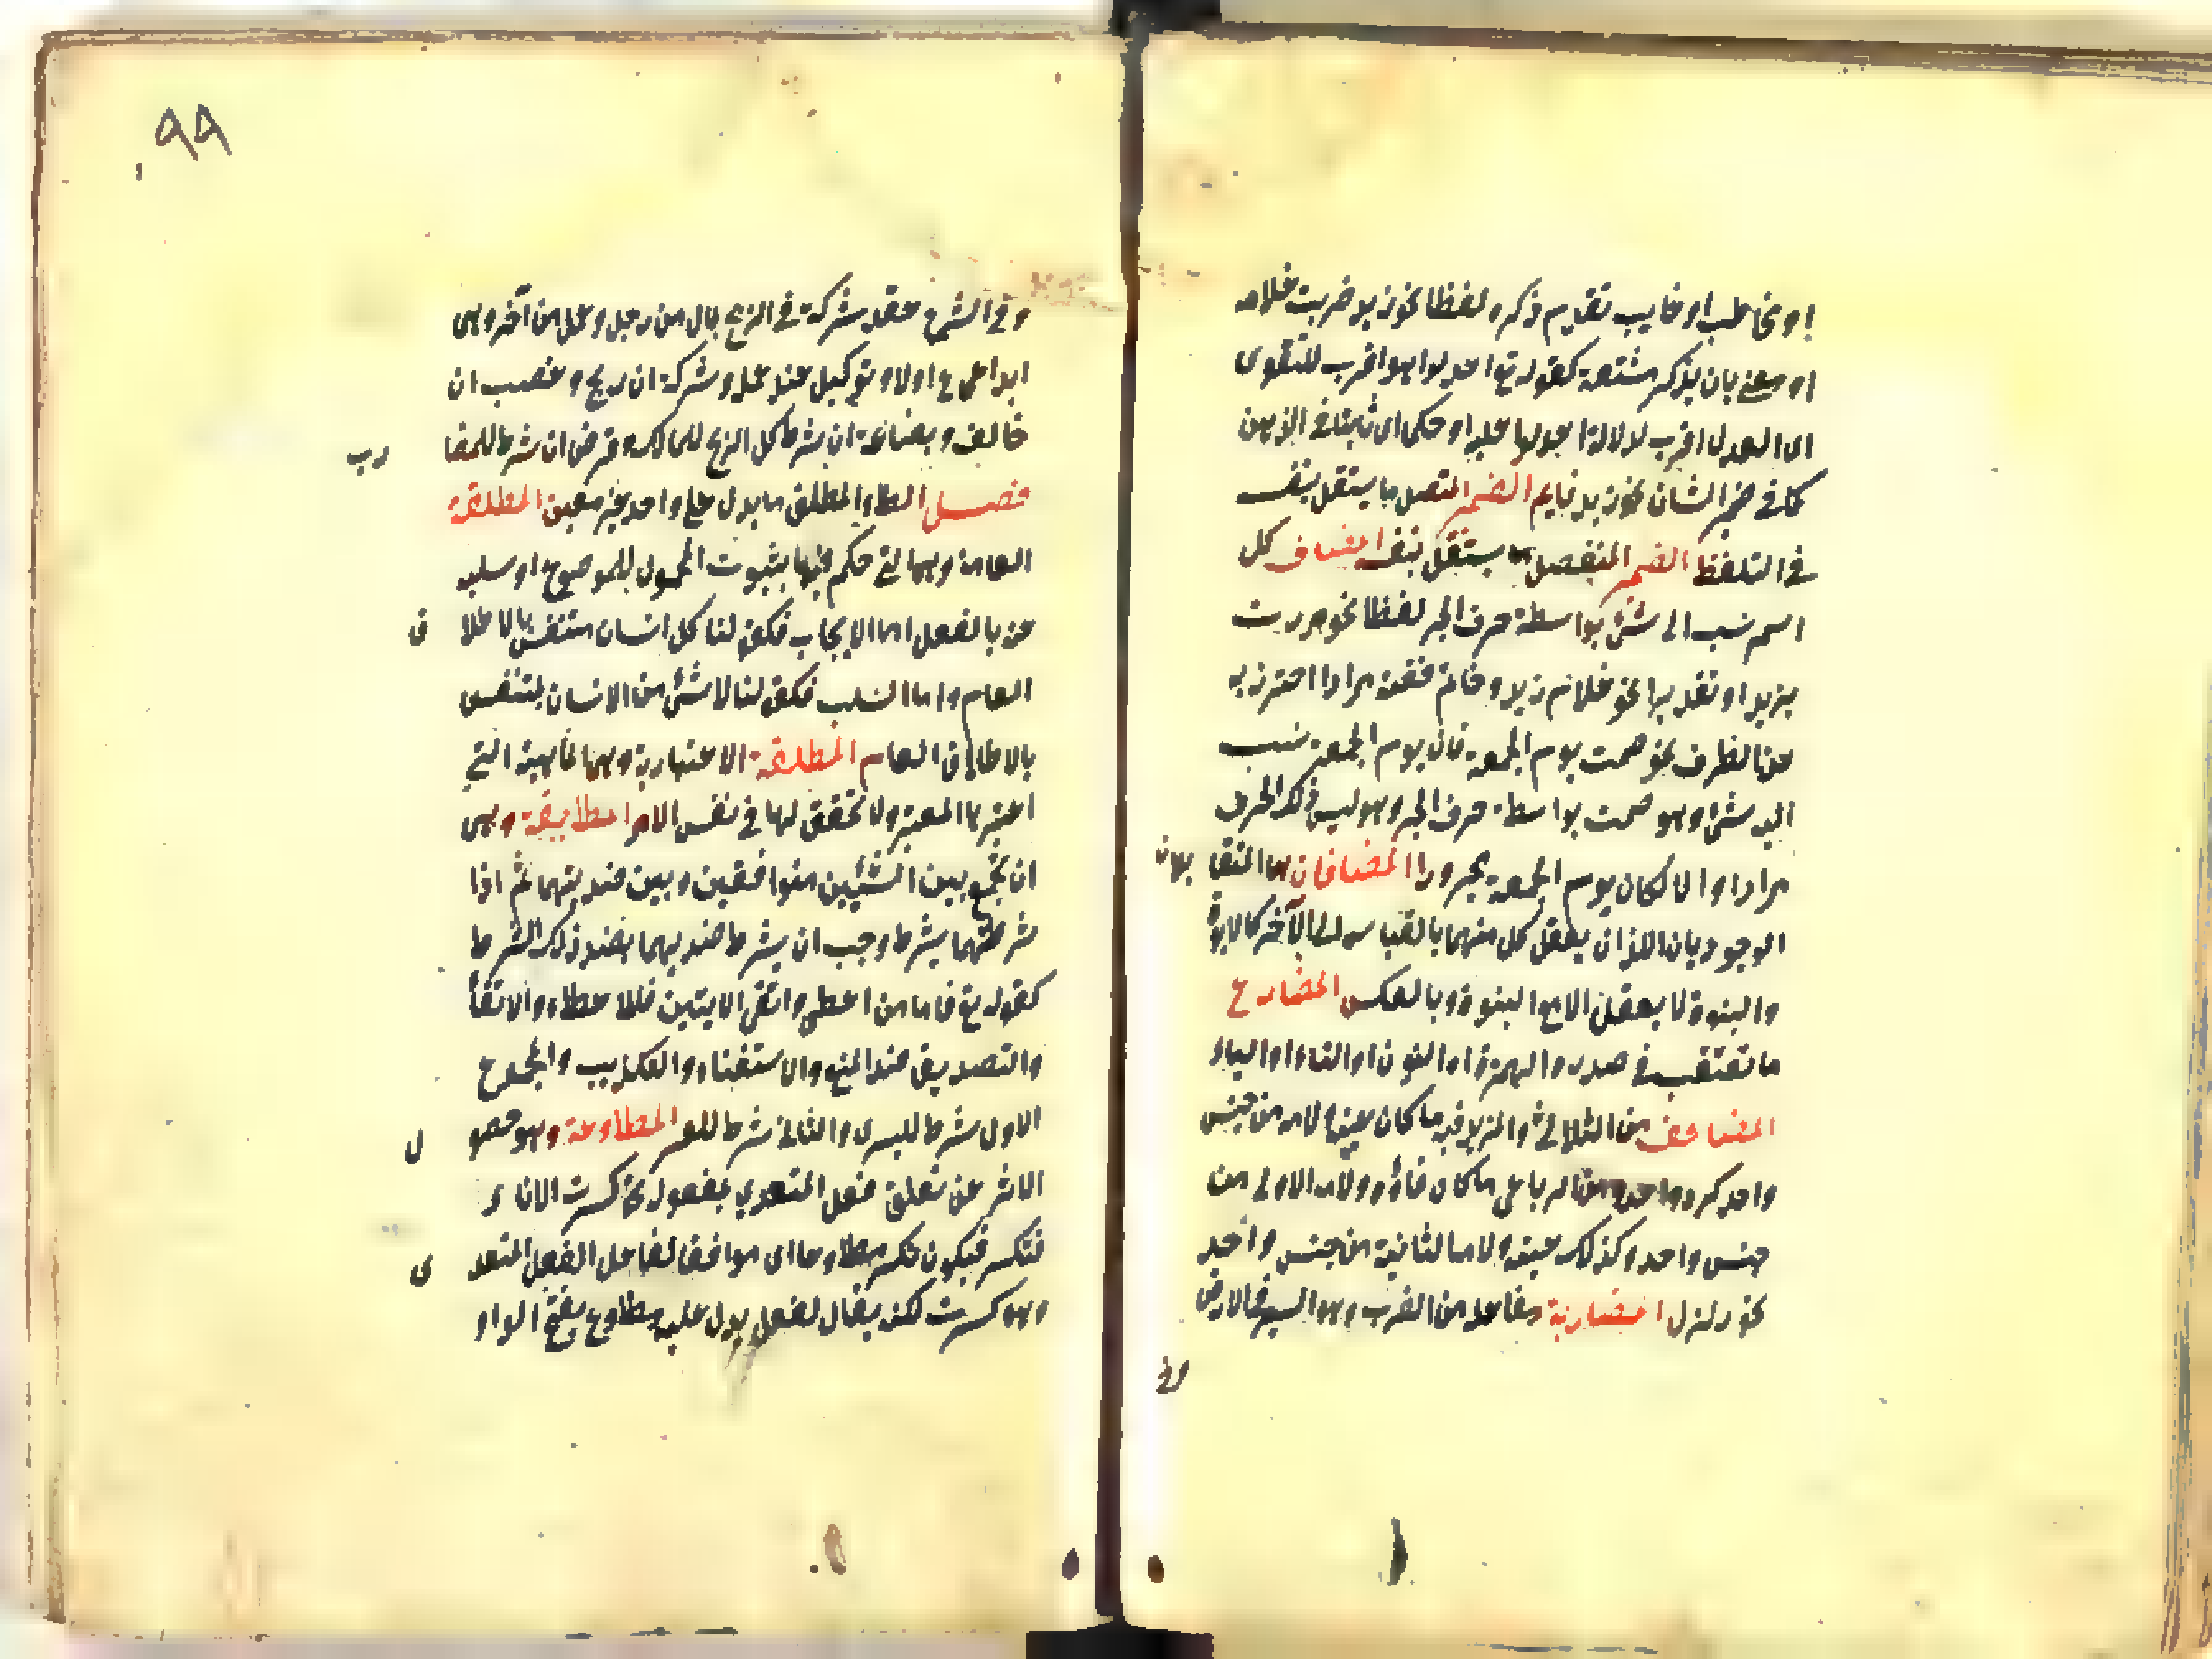 او مخاطب او غايب تقدم ذكره لفظا نحو زيد ضربت غلامه
او معنى بان يذكر مشتقه كقوله تع اعدلوا هو اقرب للتقوى
اى العدل اقرب لدلالة اعدلوا عليه او حكما اى ثابتا فى الذهن
كما فى ضمير الشان نحو زيد قايم الضمير المتصل ما يستقل بنفسه
فى التلفظ الضمير المنفصل ما يستقل بنفسه المضاف كل
اسم نسب الى شئ بواسطة حرف الجر لفظا نحو مررت
بزيد او تقديرا نحو غلام زيد وخاتم فضة مرادا احترز به
عن الظرف نحو صمت يوم الجمعة فان يوم الجمعة نسب
اليه شئ وهو صمت بواسطة حرف الجر وهو ليس ذلك الحرف
مرادا والا لكان يوم الجمعة مجرورا المضافان هما المتقابلان
الوجوديان اللذان يعقل كل منهما بالقياس الى الآخر كالابوة
والبنوة لا يعقل الا مع البنوة وبالعكس المضارع
ما تعتقب فى صدره الهمزة او النون او التاء او الياء
المضاعف من الثلاثى والمزيد فيه ما كان عينه ولامه من جنس
واحد كرد واعد ومن الرباعى ما كان فاؤه ولامه الاولى من
جنس واحد وكذلك عينه ولامه الثانية من جنس واحد
نحو زلزل المضاربة مفاعلة من الضرب وهو السير فى الارض
وفى
٩٩
وفى الشرع عقد شركة فى الربح بمال من رجل وعمل من آخر وهى
ايداع اولا وتوكيل عند عمله وشركة ان ربح وغصب ان
خالف وبضاعة ان شرط كل الربح للمالك وقرض ان شرط للمضارب
فصل الطاء المطلق ما يدل على واحد غير معين المطلقة
العامة وهى التى حكم فيها بثبوت المحمول للموضوع او سلبه
عنه بالفعل اما الايجاب فكقولنا كل انسان متنفس بالاطلاق
العام واما السلب فكقولنا لا شئ من الانسان بمتنفس
بالاطلاق العام المطلقة الاعتبارية وهى الماهية التى
اعتبرها المعتبر ولا تحقق لها فى نفس الامر المطابقة وهى
ان يجمع بين الشيئين متوافقين وبين ضديهما ثم اذا
شرطتهما بشرط وجب ان يشرط ضديهما بضد ذلك الشرط
كقوله تع فاما من اعطى واتقى الايتين فالاعطاء والاتقأ
والتصديق ضد المنع والاستغناء والتكذيب والمجموع
الاول شرط لليسرى والثانى شرط للعسرى المطاوعة وهو حصول
الاثر عن تعلق فعل المتعدي بمفعوله نحو كسرت الاناء
فتكسر فيكون تكسر مطاوعا اى موافقا لفاعل الفعل المتعدى
وهو كسرت لكنه يقال لفعل يدل عليه مطاوع بفتح الواو